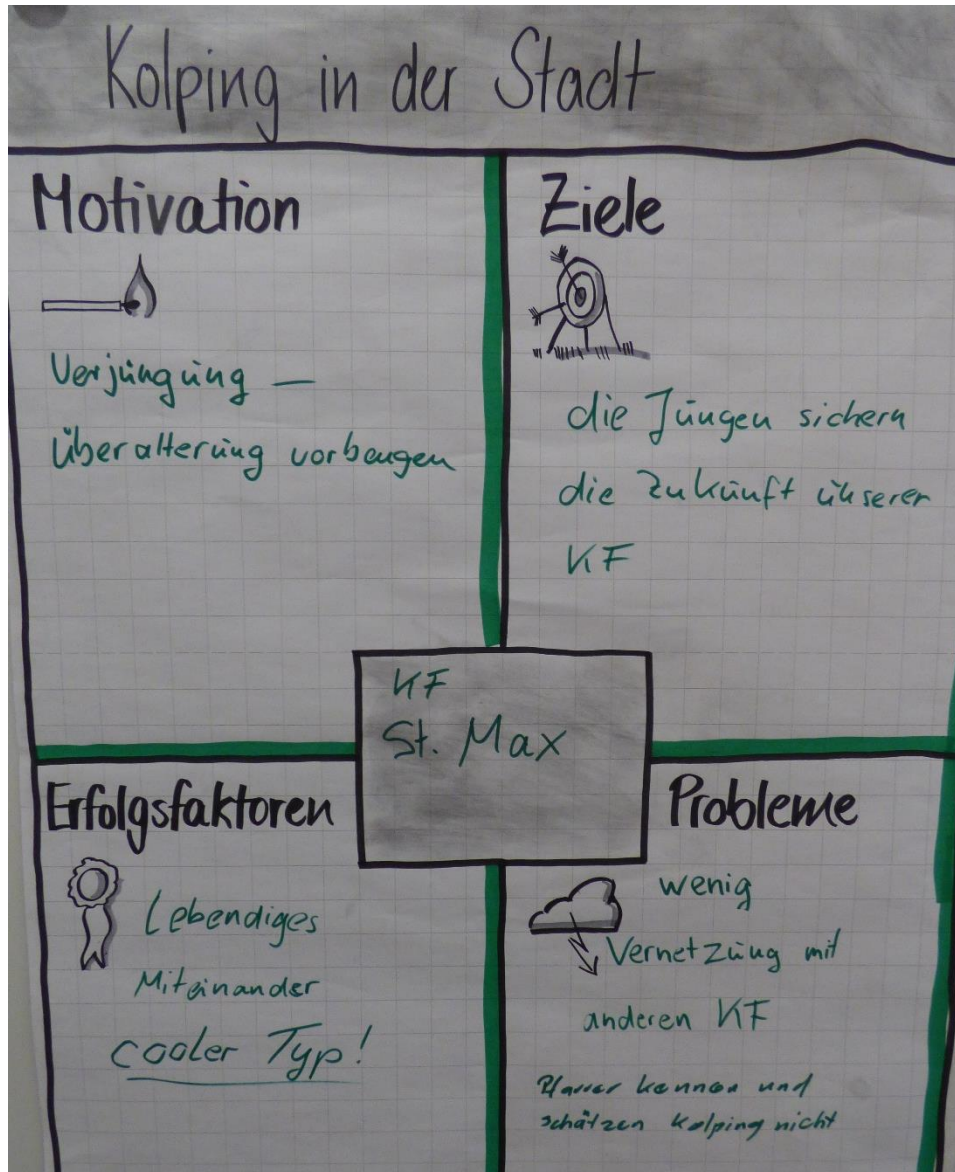 Kolping in der Stadt
Motivation
Verjüngung —
Überalterung vorbeugen
Ziele
die Jungen sichern
die Zukunft unserer
KF
KF
St. Max
Erfolgsfaktoren
Lebendiges
Miteinander
cooler Typ!
Probleme
wenig
Vernetzung mit
anderen KF
Pfarrer kennen und
schätzen Kolping nicht